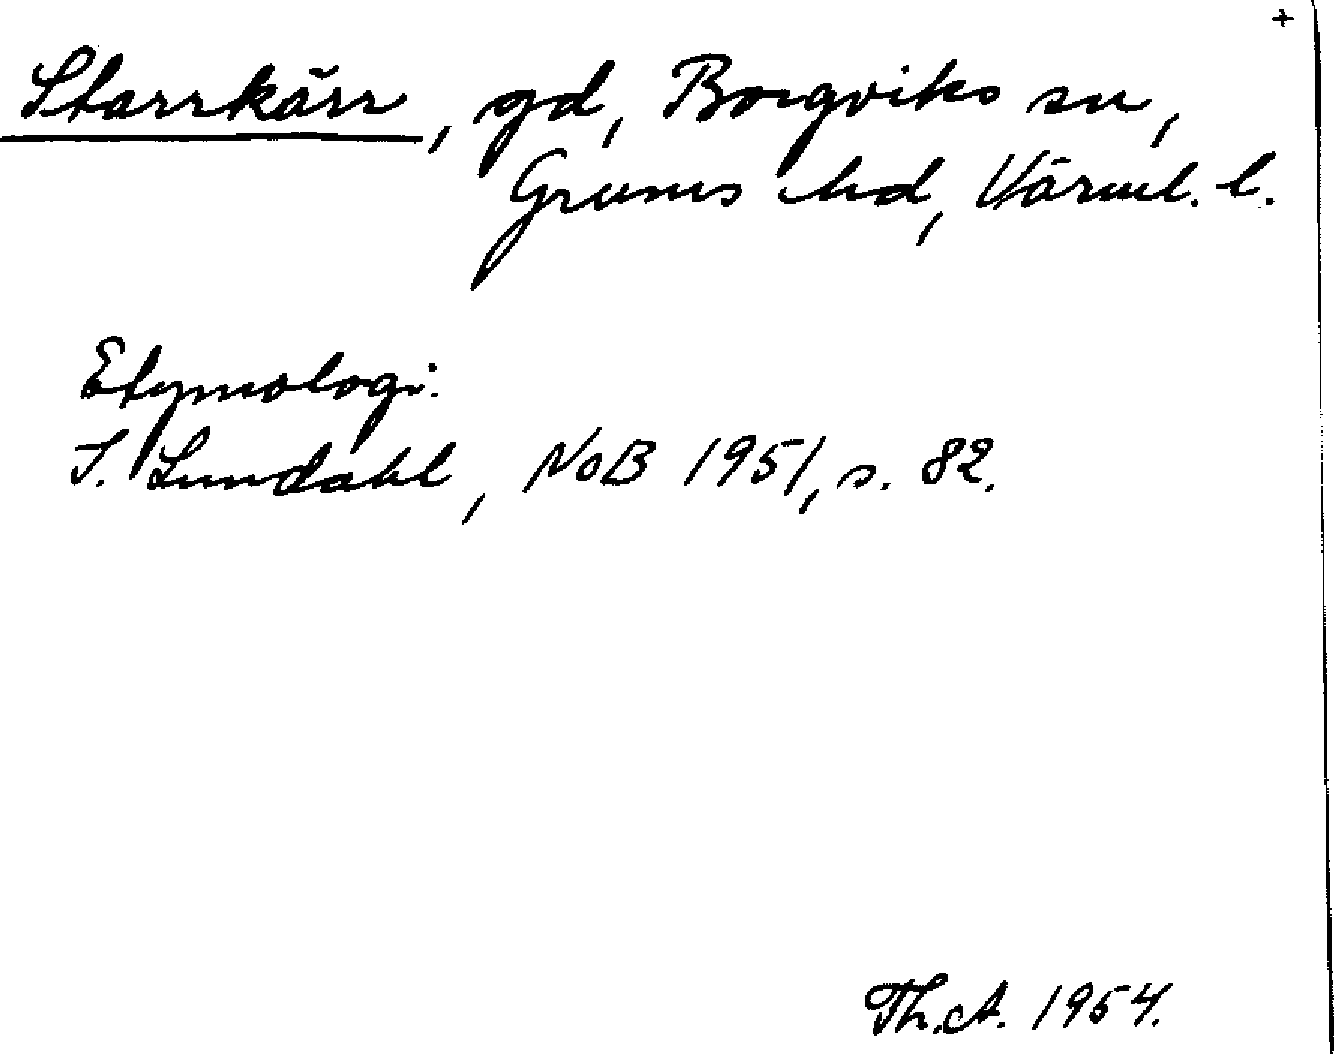 +
Starrkärr, gd, Borgviks sn,
Grums hd, Värml. l.
Etymologi:
I. Lundahl, NoB 1951, s. 82.
Th.A. 1954.